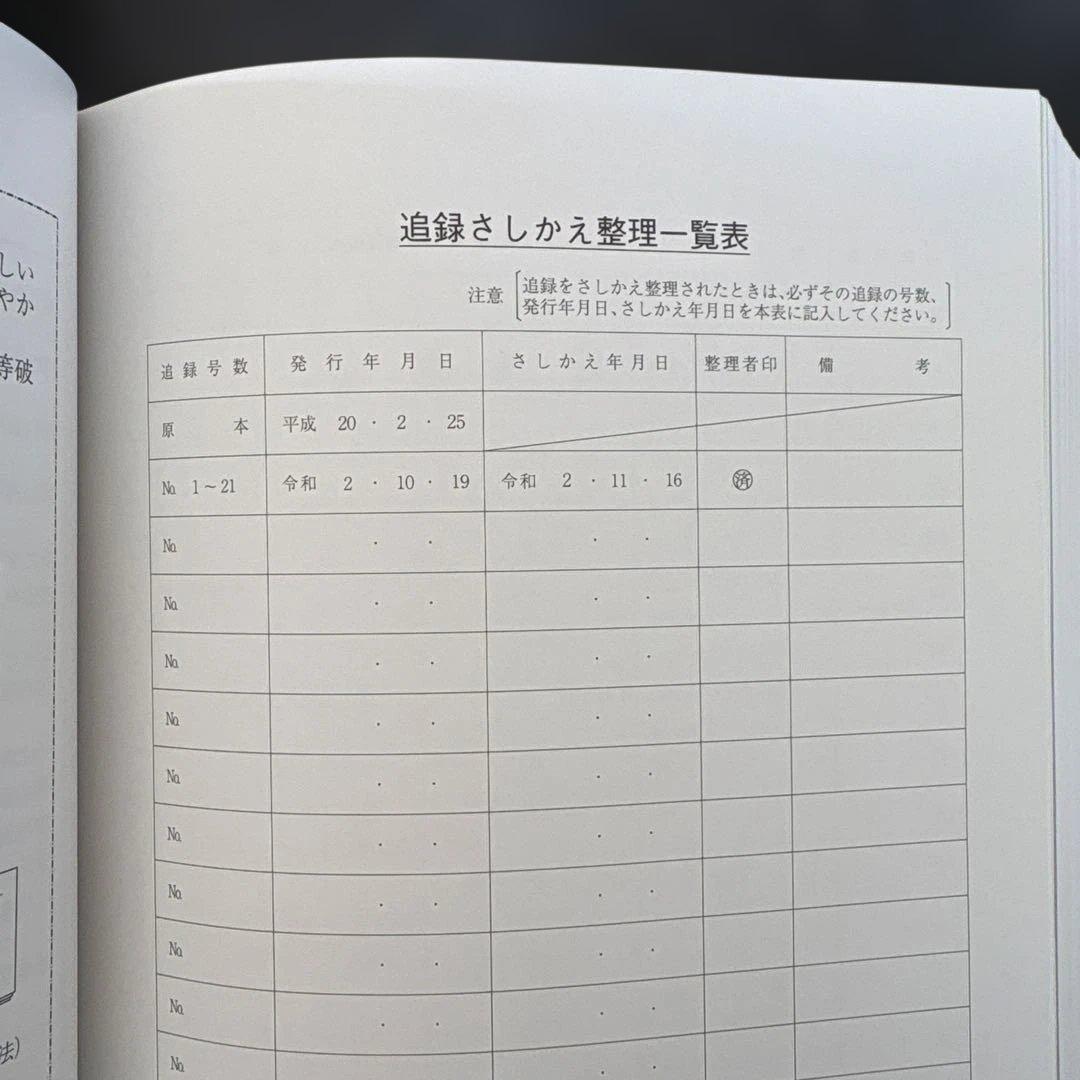 しい
やか
等破
法)
追録さしかえ整理一覧表
注意 追録をさしかえ整理されたときは、必ずその追録の号数、
発行年月日、さしかえ年月日を本表に記入してください。
追録号数 発行年月日 さしかえ年月日 整理者印 備考
原本 平成 20・2・25
№ 1~21 令和 2・10・19 令和 2・11・16 済
№ ・ ・ ・ ・
№ ・ ・ ・ ・
№ ・ ・ ・ ・
№ ・ ・ ・ ・
№ ・ ・ ・ ・
№ ・ ・ ・ ・
№ ・ ・ ・ ・
№ ・ ・ ・ ・
№ ・ ・ ・ ・
№ ・ ・